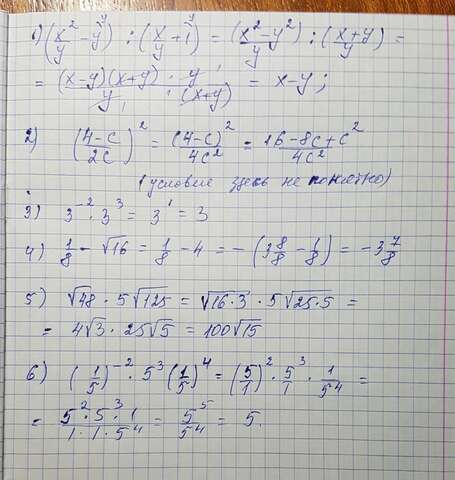 1) (x²/y - y^y) : (x/y + 1^y) = (x² - y²)/y : (x+y)/y =
= (x-y)(x+y)/y · y/(x+y) = x-y;
2) ((4-c)/2c)² = (4-c)²/4c² = (16-8c+c²)/4c²
(условие здесь не понятно)
3) 3⁻² · 3³ = 3¹ = 3
4) 1/8 - √16 = 1/8 - 4 = -(3 8/8 - 1/8) = -3 7/8
5) √48 · 5√125 = √16·3 · 5√25·5 =
= 4√3 · 25√5 = 100√15
6) (1/5)⁻² · 5³ (1/5)⁴ = (5/1)² · 5³/1 · 1/5⁴ =
= 5²·5³·1/1·1·5⁴ = 5⁵/5⁴ = 5.